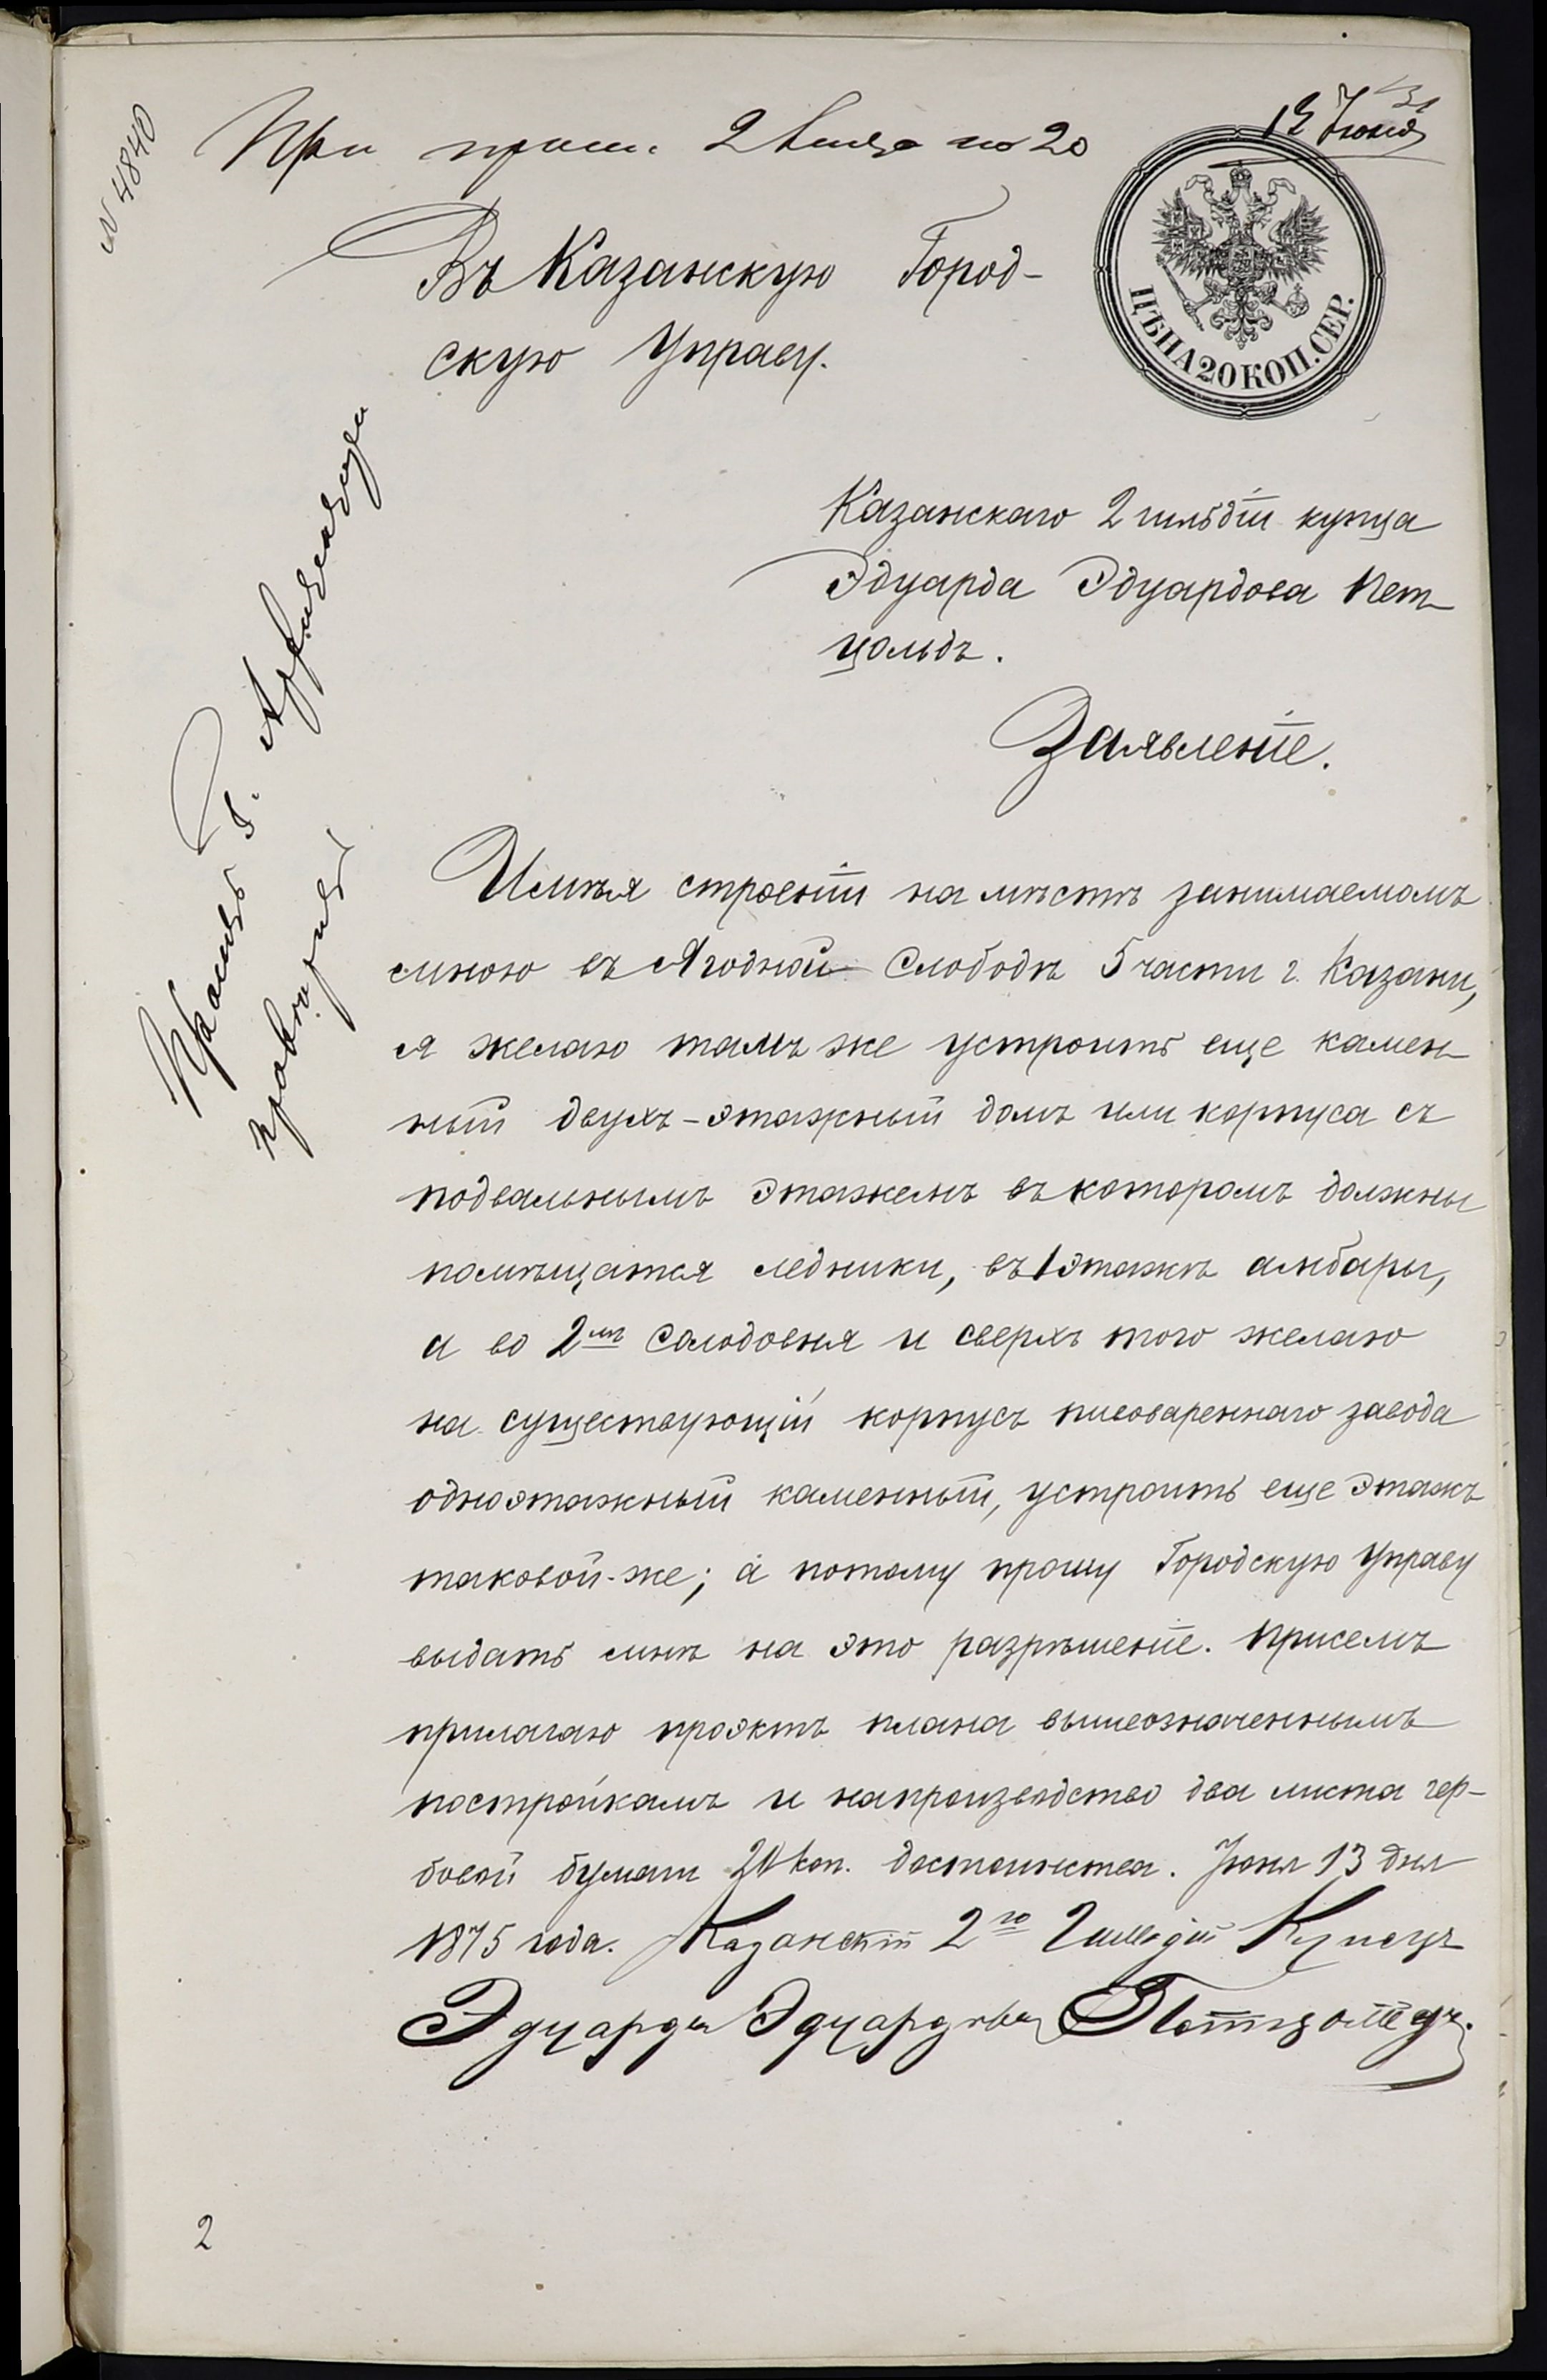 N 4840
При прош. 2 листа по 20
13 Июня
Въ Казанскую Город-
скую Управу.
ЦѢНА 20 КОП. СЕР.
Казанскаго 2 гильдіи купца
Эдуарда Эдуардова Пет-
цольдъ.
Заявленіе.
Имѣя строеніи на мѣстѣ занимаемомъ
мною въ Ягодной Слободѣ 5 части г. Казани,
я желаю тамъ же устроить еще камен-
ный двухъ-этажный домъ или корпуса съ
подвальнымъ этажемъ въ которомъ должны
помѣщатся ледники, въ 1 этажѣ амбары,
а во 2мъ Солодовня и сверхъ того желаю
на существующій корпусъ пивовареннаго завода
одноэтажный каменный, устроить еще этажъ
таковой-же; а потому прошу Городскую Управу
выдать мнѣ на это разрѣшеніе. Присемъ
прилагаю проэктъ плана вышеозначеннымъ
постройкамъ и напроизводство два листа гер-
бовой бумаги 20 коп. достоинства. Июня 13 дня
1875 года. Казанскій 2го Гильдіи Купецъ
Эдуардъ Эдуардовъ Петцольдъ.
Просить Г. Архитектора
2